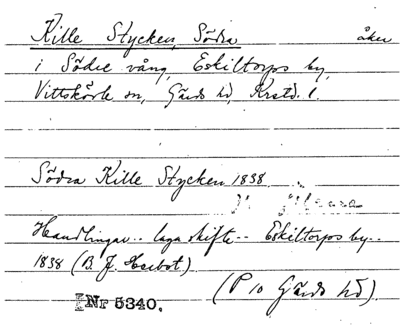 Kille Stycken, Södra åker
i Södre vång, Eskiltorps by,
Vittskövle sn, Gärds hd, Krstd. l.
Södra Kille Stycken 1838
Handlingar -- laga skifte -- Eskiltorps by --
1838 (B. J.
(P 10 Gärds hd)
Nr 5340.